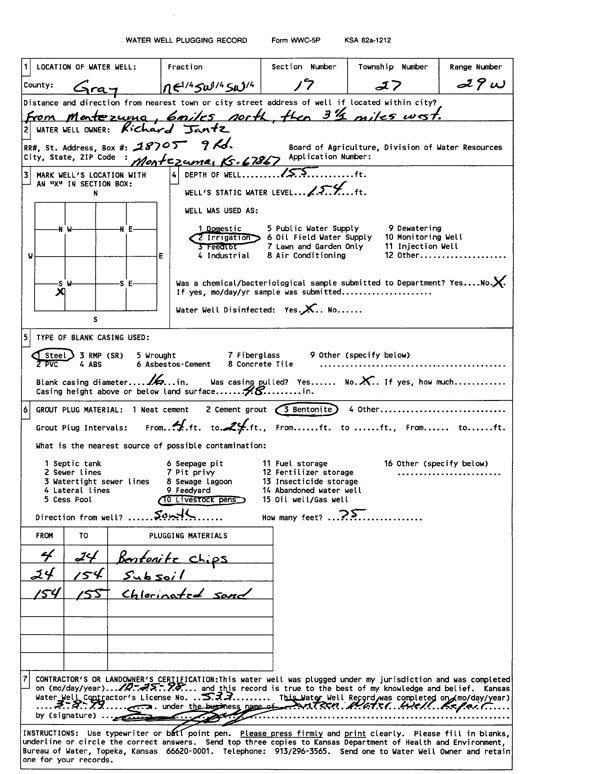 WATER WELL PLUGGING RECORD Form WWC-5P KSA 82a-1212
1 LOCATION OF WATER WELL: Fraction Section Number Township Number Range Number
County: Gray NE 1/4 SW 1/4 SW 1/4 19 27 29 W
Distance and direction from nearest town or city street address of well if located within city?
From Montezuma, 6 miles north, then 3 1/2 miles west.
2 WATER WELL OWNER: Richard Jantz
RR#, St. Address, Box #: 28705 9 Rd. Board of Agriculture, Division of Water Resources
City, State, ZIP Code : Montezuma, Ks. 67867 Application Number:
3 MARK WELL'S LOCATION WITH AN "X" IN SECTION BOX:
N
N W N E
W E
S W S E
X
S
4 DEPTH OF WELL.....155.........ft.
WELL'S STATIC WATER LEVEL...154...ft.
WELL WAS USED AS:
1 Domestic 5 Public Water Supply 9 Dewatering
2 Irrigation 6 Oil Field Water Supply 10 Monitoring Well
3 Feedlot 7 Lawn and Garden Only 11 Injection Well
4 Industrial 8 Air Conditioning 12 Other..................
Was a chemical/bacteriological sample submitted to Department? Yes....No.X.
If yes, mo/day/yr sample was submitted...................
Water Well Disinfected: Yes.X.. No......
5 TYPE OF BLANK CASING USED:
1 Steel 3 RMP (SR) 5 Wrought 7 Fiberglass 9 Other (specify below)
2 PVC 4 ABS 6 Asbestos-Cement 8 Concrete Tile ..............................
Blank casing diameter....16...in. Was casing pulled? Yes...... No.X.. If yes, how much...........
Casing height above or below land surface......48.........in.
6 GROUT PLUG MATERIAL: 1 Neat cement 2 Cement grout 3 Bentonite 4 Other..........................
Grout Plug Intervals: From..4.ft. to.24.ft., From......ft. to ......ft., From...... to......ft.
What is the nearest source of possible contamination:
1 Septic tank 6 Seepage pit 11 Fuel storage 16 Other (specify below)
2 Sewer lines 7 Pit privy 12 Fertilizer storage .....................
3 Watertight sewer lines 8 Sewage lagoon 13 Insecticide storage
4 Lateral lines 9 Feedyard 14 Abandoned water well
5 Cess Pool 10 Livestock pens 15 Oil well/Gas well
Direction from well? ....South...... How many feet? ..75................
FROM TO PLUGGING MATERIALS
4 24 Bentonite chips
24 154 Subsoil
154 155 Chlorinated sand
7 CONTRACTOR'S OR LANDOWNER'S CERTIFICATION:This water well was plugged under my jurisdiction and was completed
on (mo/day/year)...10-25-98.... and this record is true to the best of my knowledge and belief. Kansas
Water Well Contractor's License No. ..533......... This Water Well Record was completed on (mo/day/year)
....3-8-99...... under the business name of Jantzen Water Well Repair
by (signature)
INSTRUCTIONS: Use typewriter or ball point pen. Please press firmly and print clearly. Please fill in blanks,
underline or circle the correct answers. Send top three copies to Kansas Department of Health and Environment,
Bureau of Water, Topeka, Kansas 66620-0001. Telephone: 913/296-3565. Send one to Water Well Owner and retain
one for your records.